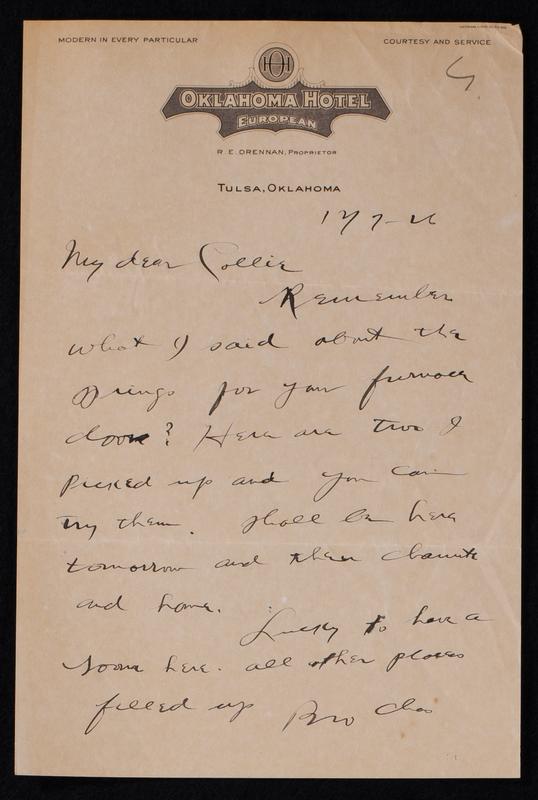 MODERN IN EVERY PARTICULAR
COURTESY AND SERVICE
OH
OKLAHOMA HOTEL
EUROPEAN
R. E. DRENNAN, PROPRIETOR
TULSA, OKLAHOMA
12/7-26
My dear Collie
Remember
what I said about the
springs for your furnace
door? Here are two I
picked up and you can
try them. Shall be here
tomorrow and then Chanute
and home.
Lucky to have a
room here. all other places
filled up Bro Chas